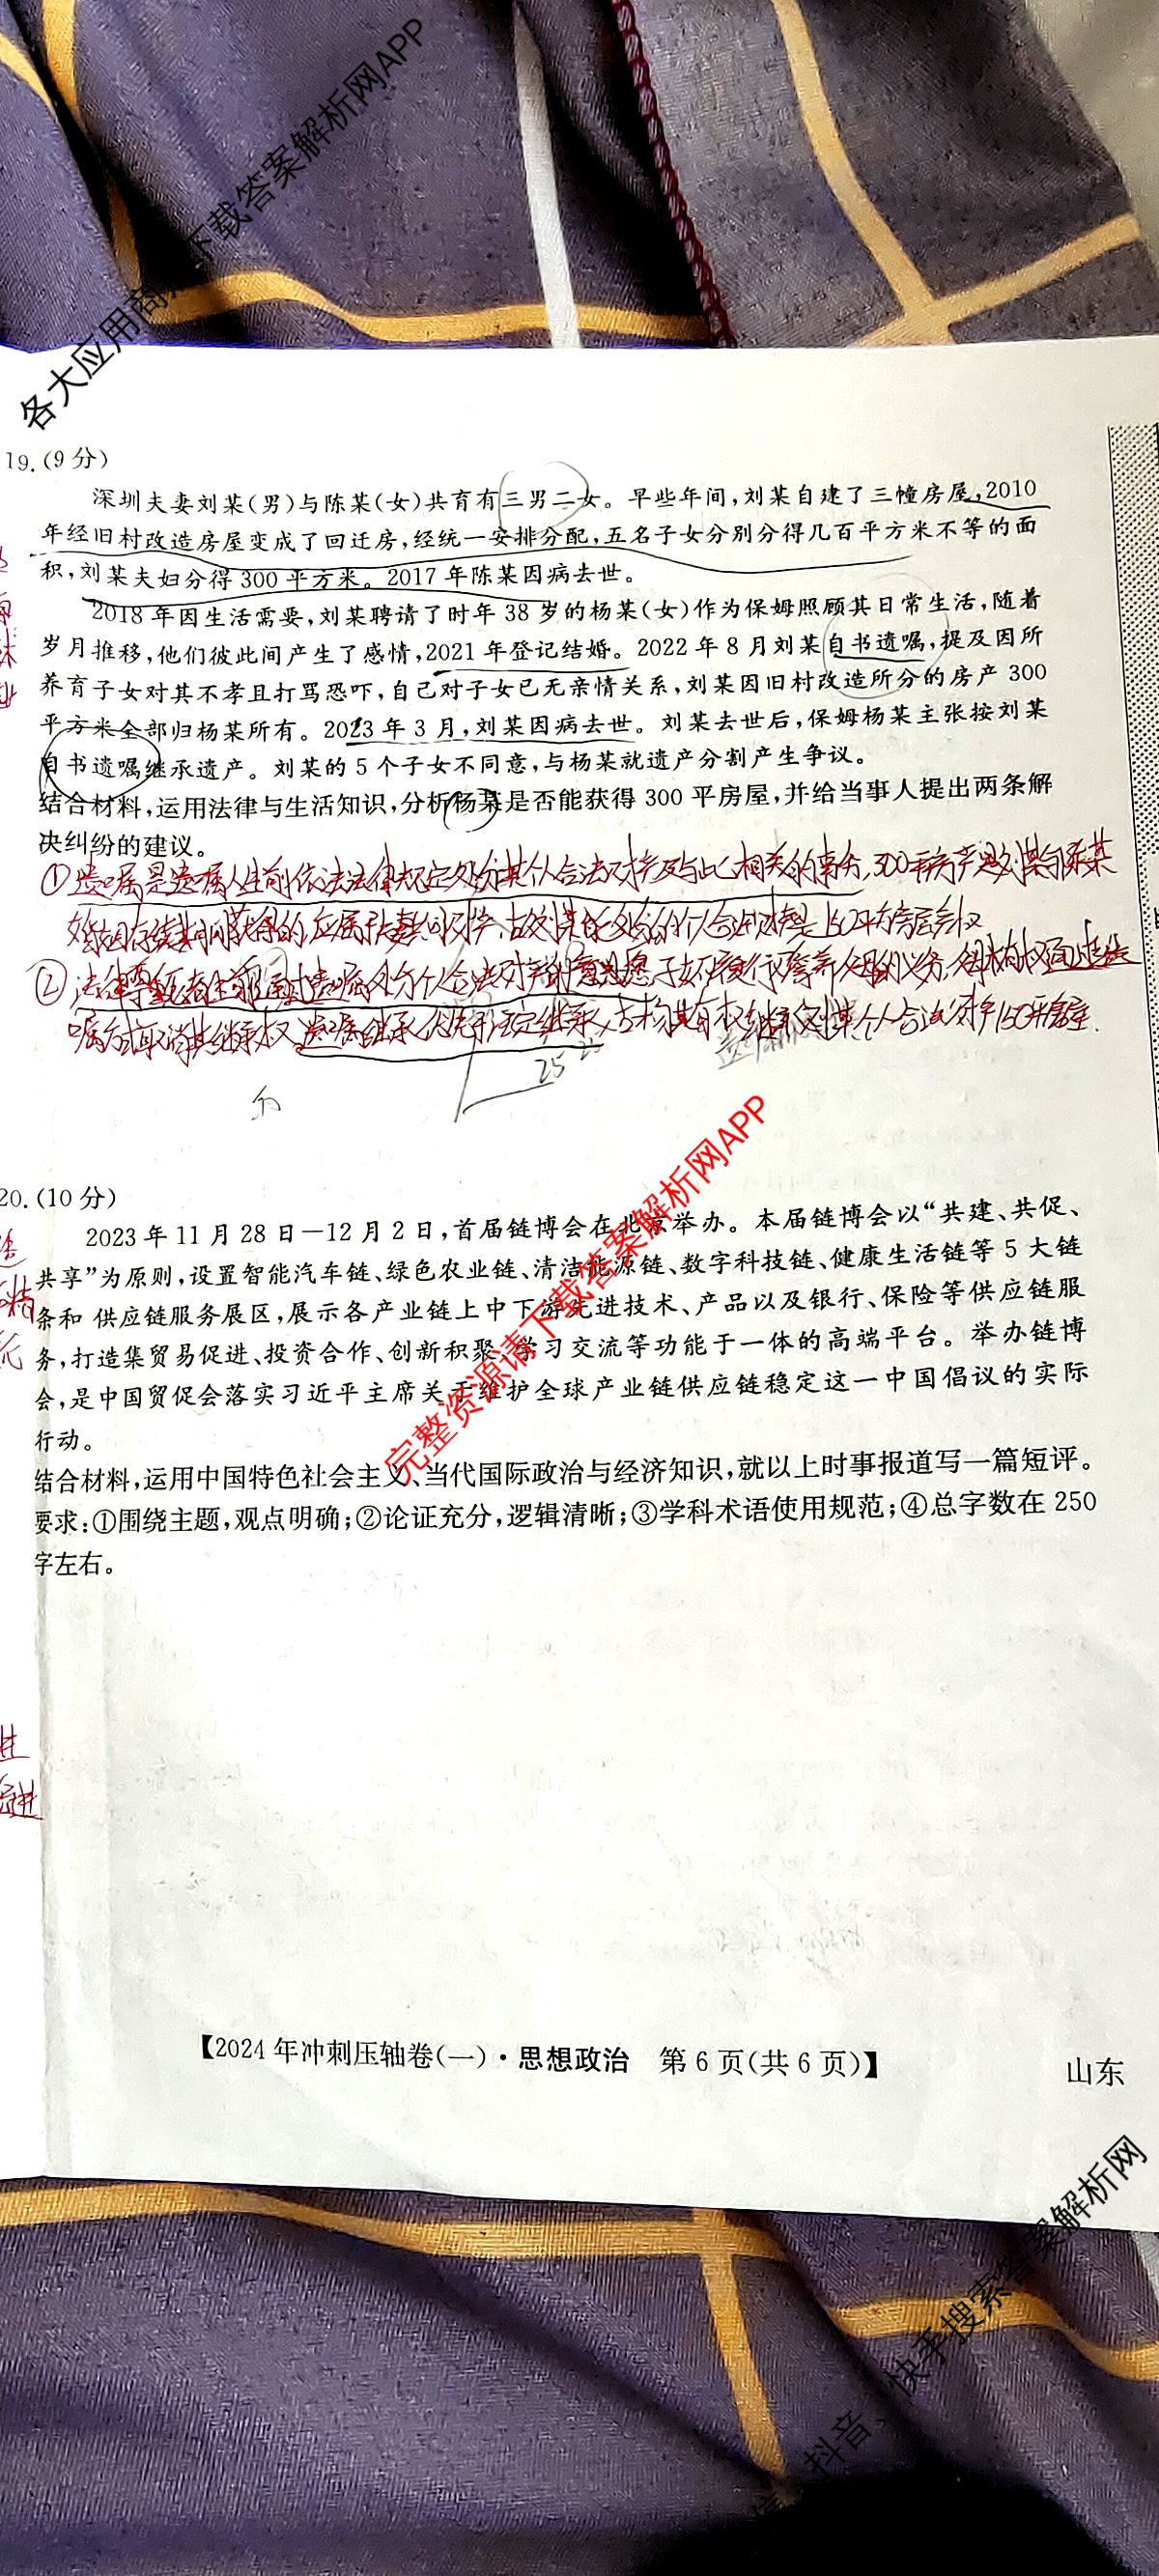 各大应用商
下载答案解析网APP
19.(9分)
深圳夫妻刘某(男)与陈某(女)共育有三男二女。早些年间,刘某自建了三幢房屋,2010
年经旧村改造房屋变成了回迁房,经统一安排分配,五名子女分别分得几百平方米不等的面
积,刘某夫妇分得300平方米。2017年陈某因病去世。
2018年因生活需要,刘某聘请了时年38岁的杨某(女)作为保姆照顾其日常生活,随着
岁月推移,他们彼此间产生了感情,2021年登记结婚。2022年8月刘某自书遗嘱,提及因所
养育子女对其不孝且打骂恐吓,自己对子女已无亲情关系,刘某因旧村改造所分的房产300
平方米全部归杨某所有。2023年3月,刘某因病去世。刘某去世后,保姆杨某主张按刘某
自书遗嘱继承遗产。刘某的5个子女不同意,与杨某就遗产分割产生争议。
结合材料,运用法律与生活知识,分析杨某是否能获得300平房屋,并给当事人提出两条解
决纠纷的建议。
①遗嘱是遗嘱人生前依法法律规定处分其个人合法财产及与此相关的事务,300平房产是刘某与陈某
婚姻存续期间获得的,应属于夫妻共同财产,故刘某能处分的个人合法财产是150平的房屋产权
②法律尊重死者生前通过遗嘱处分个人合法财产的意思,子女不履行赡养父母的义务,父母有权通过遗
嘱方式取消其继承权,遗嘱继承优先于法定继承,故杨某有权继承刘某个人合法财产150平房屋.
25 25
完整资源请下载答案解析网APP
20.(10分)
2023年11月28日—12月2日,首届链博会在北京举办。本届链博会以“共建、共促、
共享”为原则,设置智能汽车链、绿色农业链、清洁能源链、数字科技链、健康生活链等5大链
条和 供应链服务展区,展示各产业链上中下游先进技术、产品以及银行、保险等供应链服
务,打造集贸易促进、投资合作、创新积聚、学习交流等功能于一体的高端平台。举办链博
会,是中国贸促会落实习近平主席关于维护全球产业链供应链稳定这一中国倡议的实际
行动。
结合材料,运用中国特色社会主义、当代国际政治与经济知识,就以上时事报道写一篇短评。
要求:①围绕主题,观点明确;②论证充分,逻辑清晰;③学科术语使用规范;④总字数在250
字左右。
进
【2024年冲刺压轴卷(一)·思想政治 第6页(共6页)】
山东
快手搜索答案解析网
抖音、